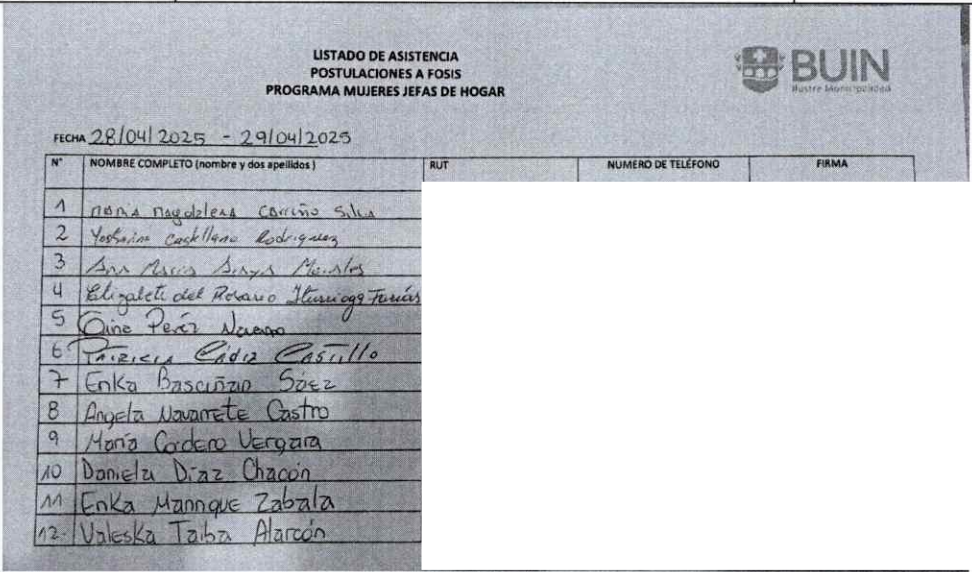 LISTADO DE ASISTENCIA
POSTULACIONES A FOSIS
PROGRAMA MUJERES JEFAS DE HOGAR
BUIN
Ilustre Municipalidad
FECHA 28/04/2025 - 29/04/2025
N° NOMBRE COMPLETO (nombre y dos apellidos ) RUT NUMERO DE TELÉFONO FIRMA
1 Maria Magdalena Carreño Silva
2 Castellano Rodriguez
3 Ana Maria Morales
4 Elizabeth del Rosario Iturriaga Farías
5 Gina Peréz Navarro
6 Patricia Cádiz Castillo
7 Erika Bascuñan Sáez
8 Angela Navarrete Castro
9 María Cordero Vergara
10 Daniela Díaz Chacón
11 Erika Manrique Zabala
12. Valeska Taiba Alarcón